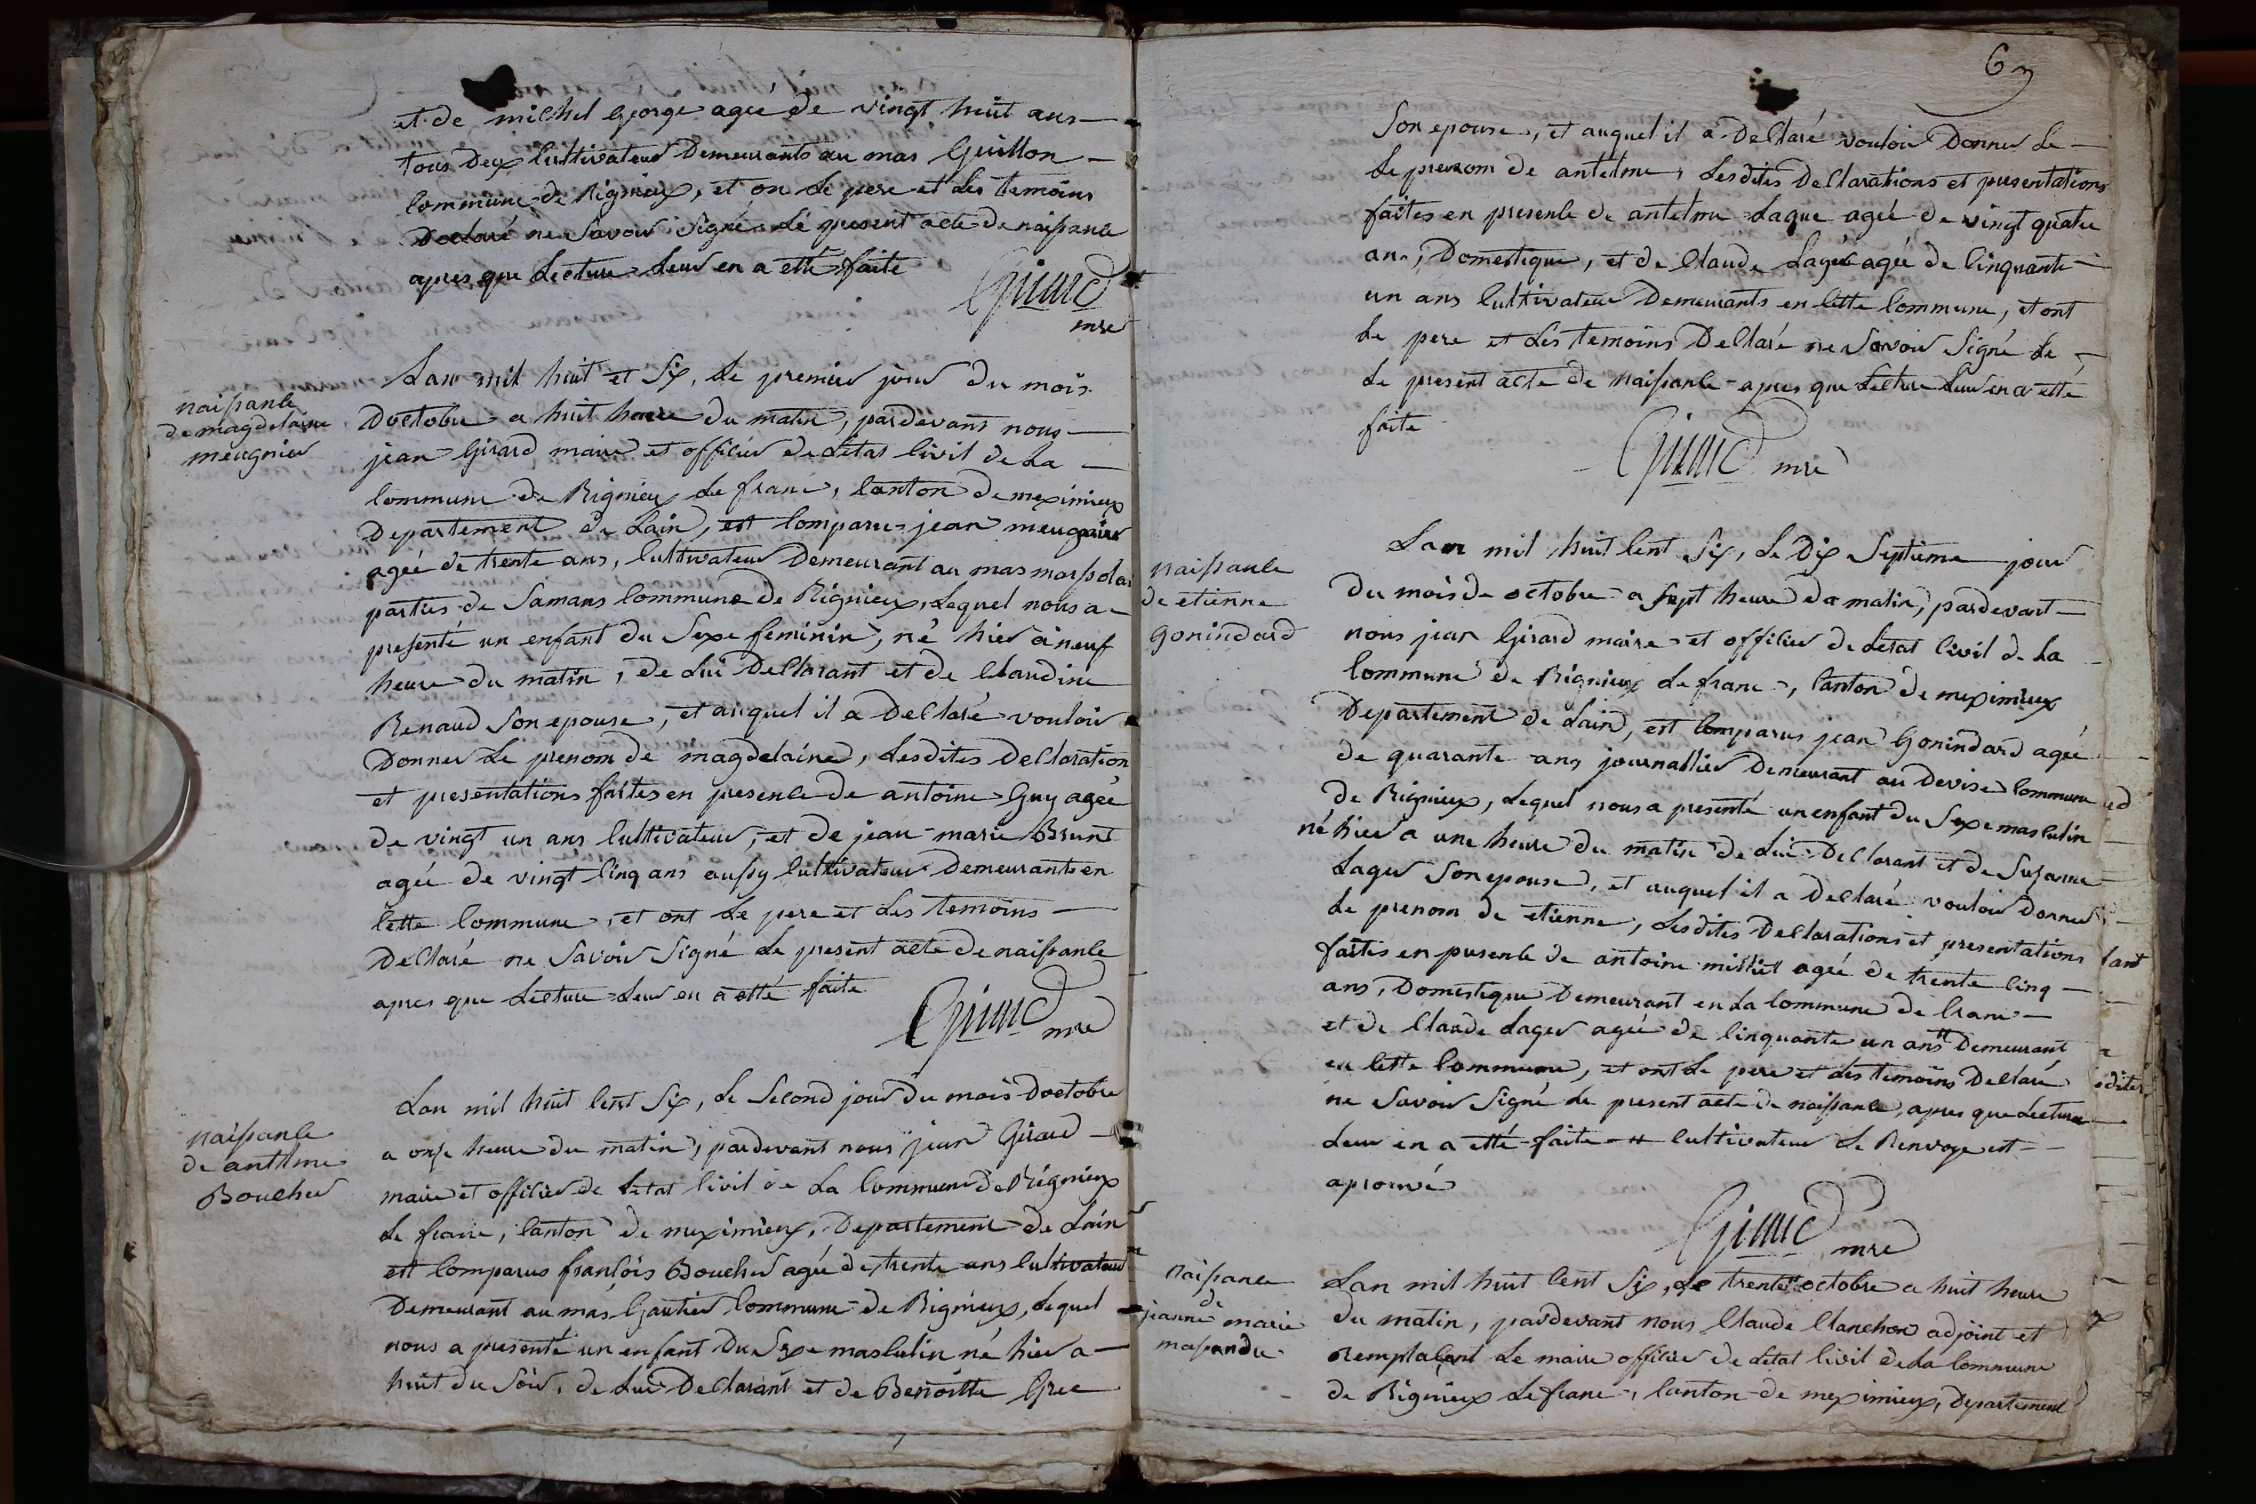 et de michel george ageé de vingt huit ans
tous deux cultivateur Demeurants au mas Guillon
commune de Rignieux, et on Le pere et Les temoins
Declaré ne Savoir Signé Le present acte de naissance
apres que Lecture Leur en a etté faite
Girard
mre
naissance
de magdelaine
meugnier
Lan mil huit et Six, Le premier jour du mois
Doctobre a huit heure du matin, pardevant nous
jean Girard maire et officier de Létat Civil de La
Commune de Rignieux Le franc, Canton de meximieux
Departement de Lain, est comparu jean meugnier
ageé de trente ans, Cultivateur Demeurant au mas
parties de Samans Commune de Rignieux, Lequel nous a
presenté un enfant du Sexe feminin, né hier a neuf
heure du matin, de Lui Declarant et de Claudine
Renaud Son epouse, et auquel il a Declaré vouloir
Donner Le prenom de magdelaine, Lesdites Declaration
et presentations faites en presence de antoine Guy ageé
de vingt un ans Cultivateur, et de jean marie Brunt
ageé de vingt Cinq ans aussy Cultivateur Demeurants en
Cette Commune, et ont Le pere et Les temoins
Declaré ne Savoir Signé Le present acte de naissance
apres que Lecture Leur en a etté faite
Girard mre
naissance
de antelme
Boucher
Lan mil huit Cent Six, Le Second jour du mois Doctobre
a onze heure du matin, pardevant nous jean Girard
maire et officier de Letat Civil de La Commune de Rignieux
Le franc, Canton de meximieux, Departement de Lain
est Comparus françois Boucher ageé de trente ans Cultivateur
Demeurant au mas Gautier Commune de Rignieux, Lequel
nous a presenté un enfant du Sexe masculin né hier a
huit du Soir, de Lui Declarant et de Benoitte Gree
63
Son epouse, et auquel il a Declaré vouloir Donner Le
Le prenom de antelme, Lesdites Declarations et presentations
faites en presence de antelme Laque ageé de vingt quatre
ans, Domestique, et de Claude Lager ageé de Cinquante
un ans Cultivateur Demeurants en Cette Commune, et ont
Le pere et Les temoins Declaré ne Savoir Signé Le
Le present acte de naissance apres que Lecture Leur en a etté
faite
Girard mre
naissance
de etienne
gonindard
Lan mil huit Cent Six, Le Dix Septieme jour
du mois de octobre a Sept heure du matin, pardevant
nous jean Girard maire et officier de Létat Civil de La
Commune de Rignieux Le franc, Canton de meximieux
Departement de Lain, est Comparus jean Gonindard ageé
de quarante ans journallier Demeurant au Devised Commune
de Rignieux, Lequel nous a presenté un enfant du Sexe masculin
né hier a une heure du matin de Lui Declarant et de Suzanne
Lager Son epouse, et auquel il a Declaré vouloir Donner
Le prenom de etienne, Lesdites Declarations et presentations
faites en presence de antoine milliet ageé de trente Cinq
ans, Domestique Demeurant en La Commune de Crans
et de Claude Lager ageé de Cinquante un ans # Demeurant
en Cette Commune, et ont Le pere et Les temoins Declaré
ne Savoir Signé Le present acte de naissance, apres que Lecture
Leur en a etté faite # Cultivateur Le Renvoye est
aprouvé
Girard mre
naissance
de
jeanne marie
massandre
Lan mil huit Cent Six, Le trente octobre a huit heure
du matin, pardevant nous Claude Clanchon adjoint et
Remplaçant Le maire officier de Letat Civil de La Commune
de Rignieux Le franc, Canton de meximieux, Departement